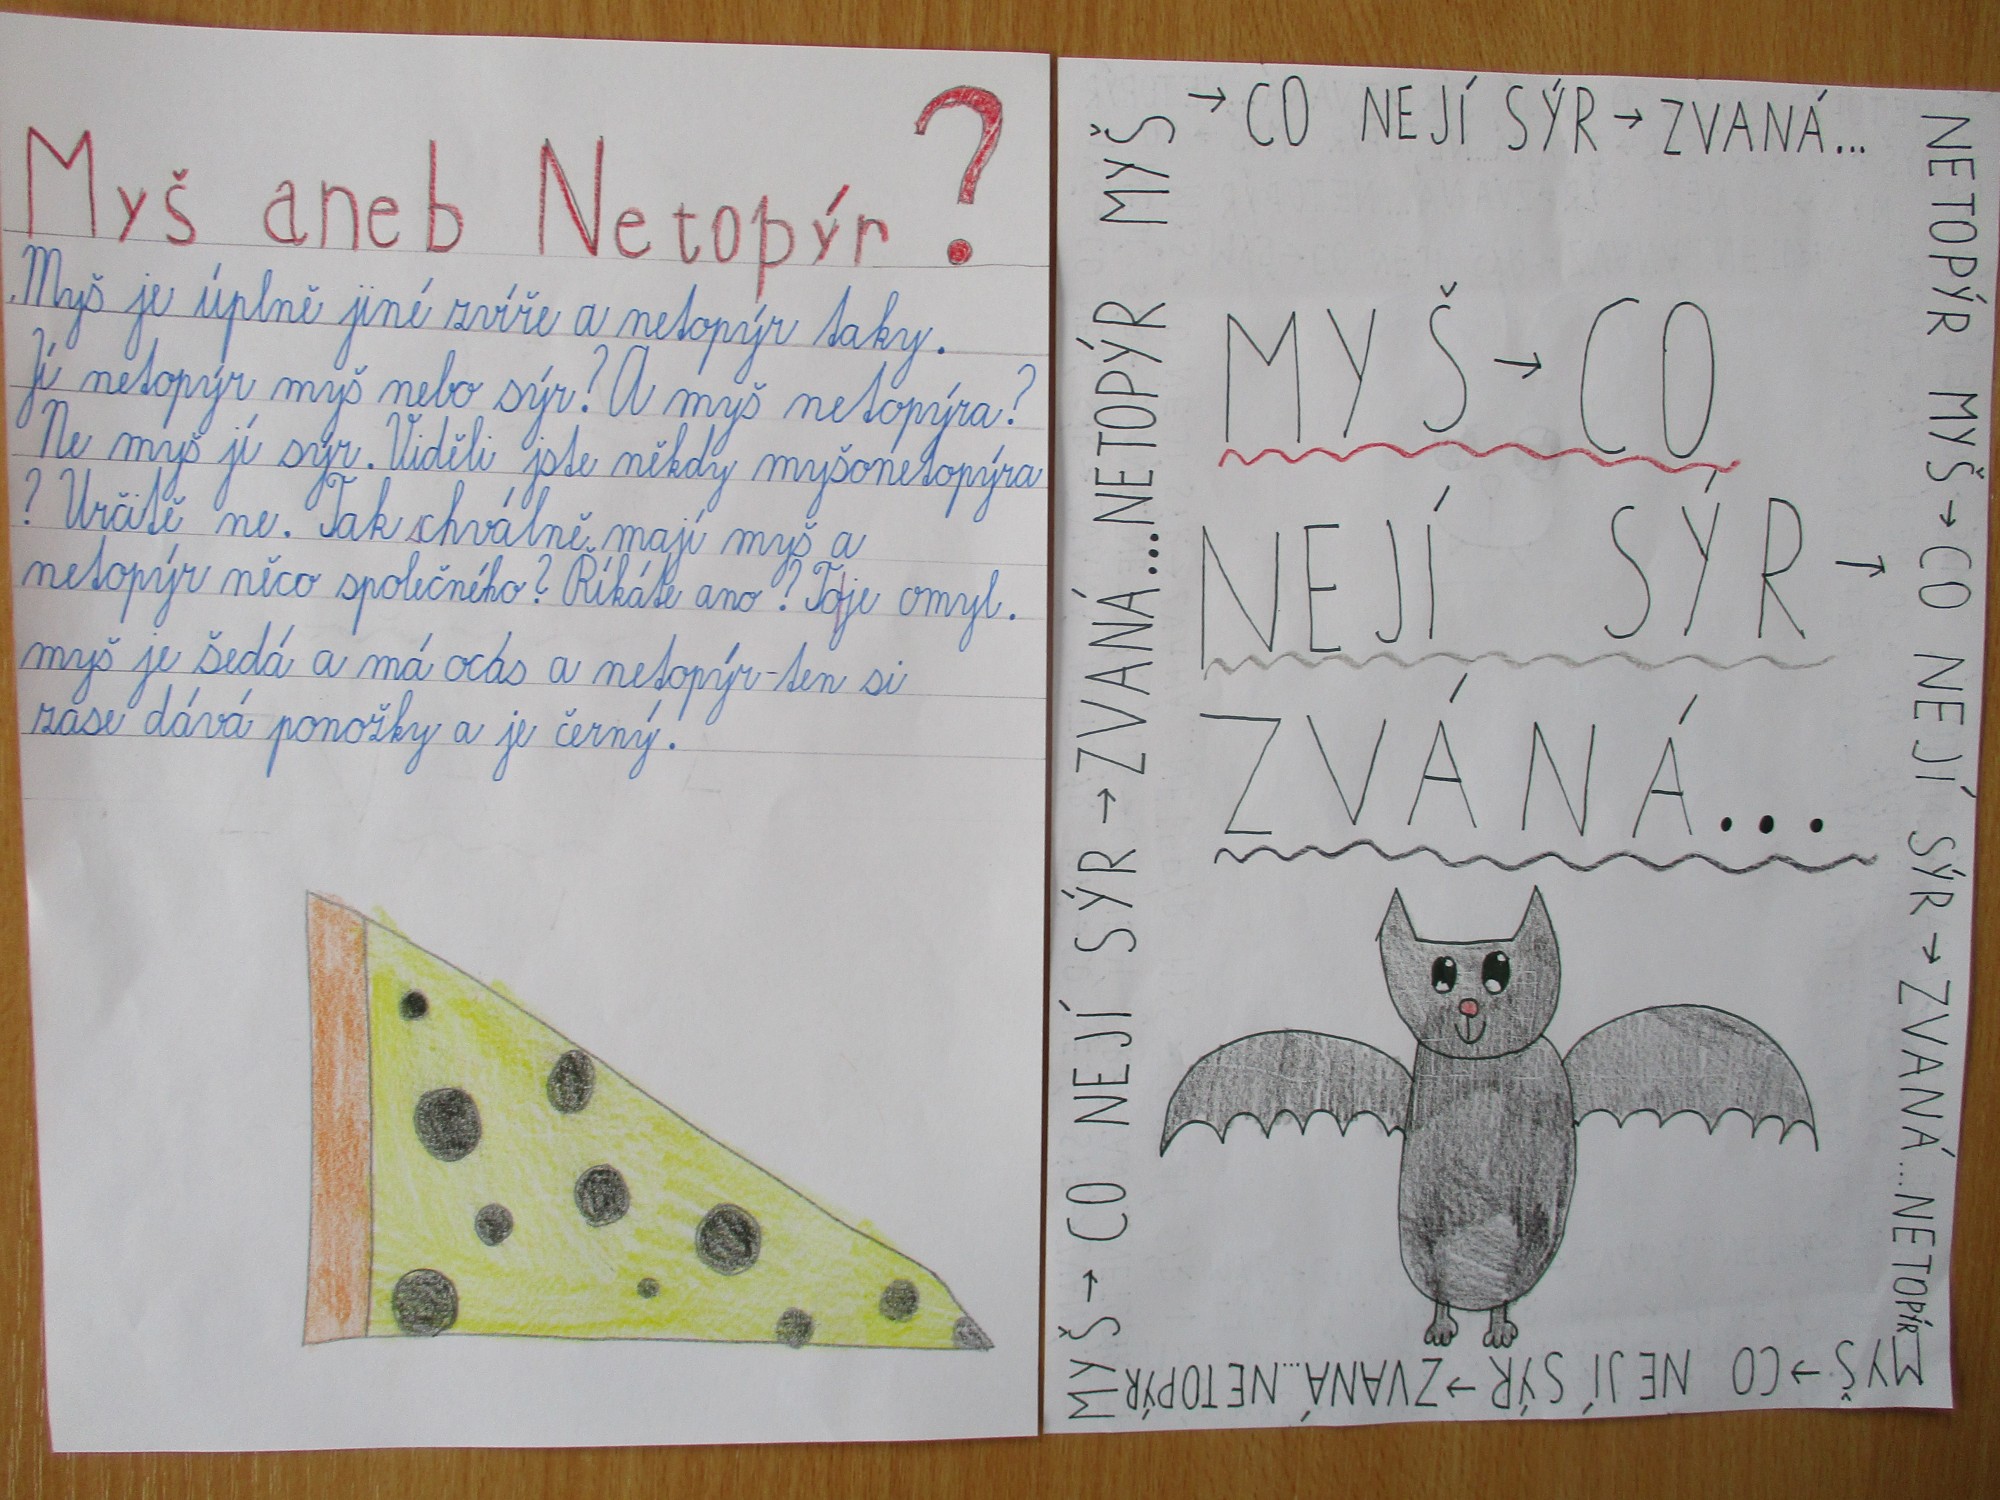 Myš aneb Netopýr?
Myš je úplně jiné zvíře a netopýr taky.
Jí netopýr myš nebo sýr? A myš netopýra?
Ne myš jí sýr. Viděli jste někdy myšonetopýra
? Určitě ne. Tak schválně mají myš a
netopýr něco společného? Říkáte ano? To je omyl.
myš je šedá a má ocas a netopýr-ten si
zase dává ponožky a je černý.
MYŠ → CO NEJÍ SÝR → ZVANÁ...
NETOPÝR MYŠ → CO NEJÍ SÝR → ZVANÁ...NETOPÝR
MYŠ → CO NEJÍ SÝR → ZVANÁ...NETOPÝR
MYŠ → CO NEJÍ SÝR → ZVANÁ...NETOPÝR
MYŠ → CO
NEJÍ SÝR →
ZVÁNÁ...